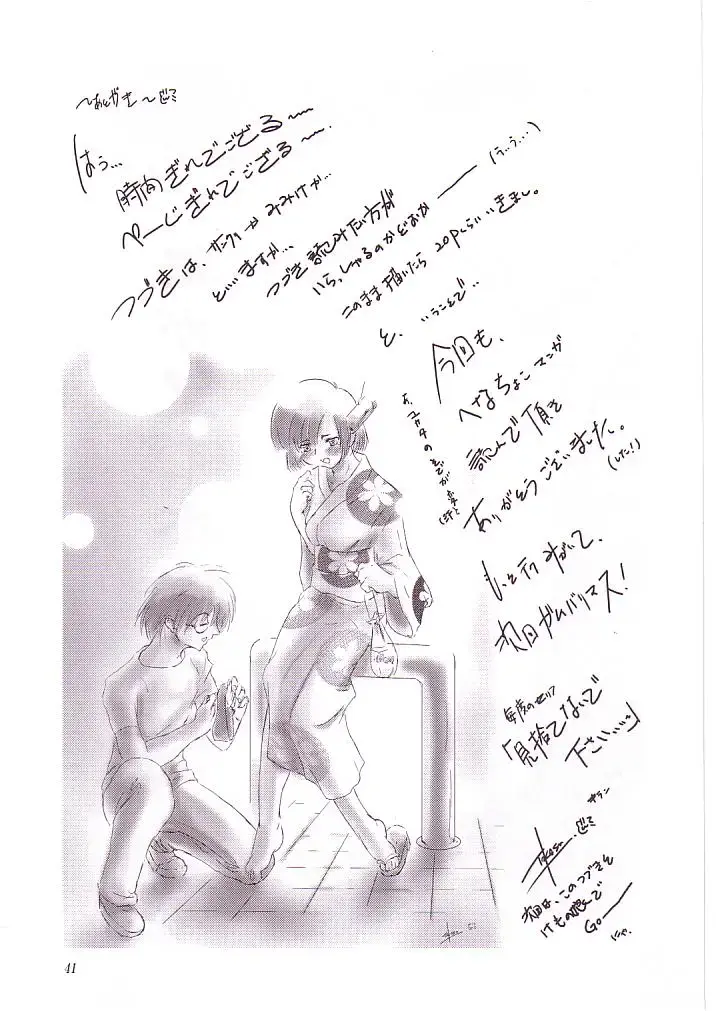 〜あとがき〜
はぅ…
時間ぎれでござる〜
ページぎれでござる〜
つづきは、サンクリかみみけか…
と…ますか…
つづき読みたい方が
いらっしゃるのかどおか──
(う…う…)
このまま描いたら20Pくらいいきまし。
と、いうことで‥
今回も、
へなちょこマンガ
読んで頂き
ありがとうございました。
(した!)
あ、ユカタの
もっと
みがいて、
次回ガンバリマス!
毎度のセリフ
「見捨てないで
下さい…」
次回は、このつづきを
けもの
で
GO──
にゃ。
41